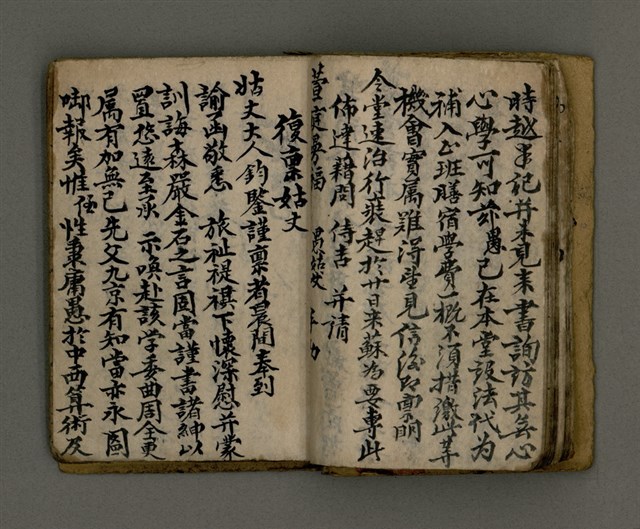 時越弔記并未見来書詢訪其無心
心學可知茲愚已在本堂設法代为
補入出班膳宿學費一概不須措繳此等
機會實属難得望見信後即禀明
令堂速治行裝趕於廿日来蘇为要專此
佈達藉問 侍吉 并請
萱
愚姑丈 手力
復禀姑丈
姑丈大人鈞鑒謹禀者晨間奉到
諭函敬悉 旅祉禔祺下懷深慰并蒙
訓誨森嚴金石之言固當謹書諸紳以
置悠遠至承 示喚赴該学委曲周全更
属有加無已先父九京有知當亦永圖
啣報矣惟任性秉庸愚於中西算術及